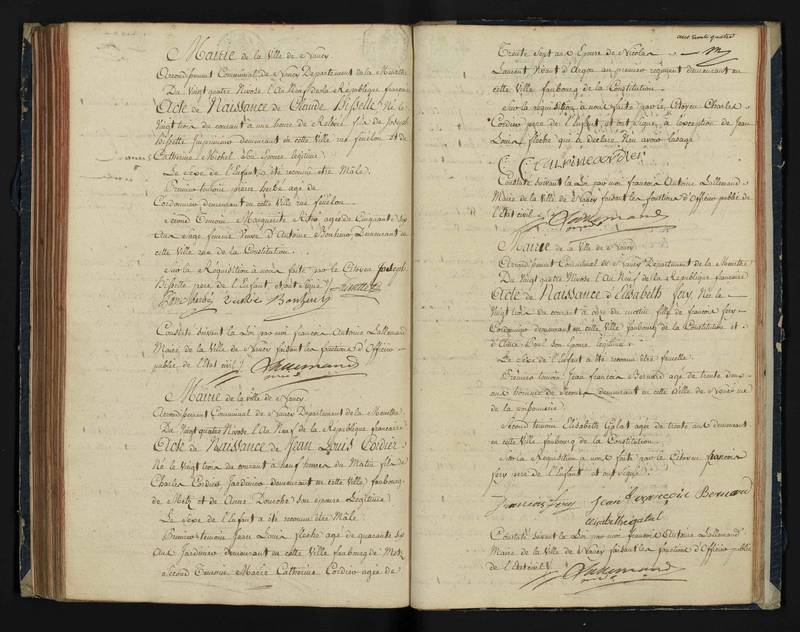 Mairie de la Ville de Nancy
Arrondissement Communal de Nancy Département de la Meurthe
Du Vingt quatre Nivose l'An Neuf de la République française
Acte de Naissance de Claude Bissette Né le
Vingt trois du courant à une heure de Relevée fils de Joseph
Bissette Imprimeur demeurant en cette Ville rue fénélon et de
Catherine Michel son Epouse légitime
Le Sexe de l'Enfant a été reconnu être Mâle.
Premier témoin pierre herbé age de
Cordonnier demeurant en cette Ville rue fénélon.
Second Témoin Marguerite agée de Cinquant six
ans Sage femme Veuve d'Antoine Bonhure Demeurant en
cette Ville rue de la Constitution.
Sur la Requisition à nous faite par le Citoyen Joseph
Bissette pere de l'Enfant et ont signé
Constaté suivant la Loi par moi françois Antoine Lallemand
Maire de la Ville de Nancy faisant les fonctions d'Officier
public de l'Etat civil
Lallemand
Mairie de la ville de Nancy.
Arrondissement Communal de Nancy Département de la Meurthe.
Du Vingt quatre Nivose l'An Neuf de la République française
Acte de Naissance de Jean Louis Cordier
Né le Vingt trois du courant à neuf heures du Matin fils de
Charles Cordier Jardinier demeurant en cette Ville faubourg
de Metz et de Anne son épouse Légitime
Le Sexe de l'Enfant a été reconnu être Mâle
Premier témoin Jean Louis fleche agé de quarante six
ans Jardinier demeurant en cette Ville faubourg de Metz
Second Temoin Marie Catherine Cordier agée de
Trente Sept ans Epouse de Nicolas
Laurent au premier régiment demeurant en
cette Ville faubourg de la Constitution
Sur la réquisition à nous faite par le Citoyen Charles
Cordier pere de l'Enfant et ont signé, à l'exception de Jean
Louis fleche qui a déclaré n'en avoir l'usage
Constaté suivant la Loi par moi françois Antoine Lallemand
Maire de la Ville de Nancy faisant les fonctions d'Officier public de
l'Etat civil
Lallemand
Mairie de la Ville de Nancy
Arrondissement Communal de Nancy Département de la Meurthe
Du Vingt quatre Nivose l'An Neuf de la République française
Acte de Naissance d'Elisabeth fery, Née le
Vingt trois du courant à dix du matin fille de françois fery
Cordonnier demeurant en cette Ville faubourg de la Constitution et
d'Anne son Epouse légitime
Le Sexe de l'Enfant a été reconnu être femelle
Premier témoin Jean françois Bernard agé de trente deux
ans homme de demeurant en cette Ville de Nancy rue
de la poissonnerie
Second temoin Elisabeth Galat agée de trente ans demeurant
en cette Ville faubourg de la Constitution
Sur la Requisition à nous faite par le Citoyen françois
fery pere de l'Enfant et ont signé
francois fery Jean françois Bernard
Elisabethe galat
Constaté suivant la Loi par moi françois Antoine Lallemand
Maire de la Ville de Nancy faisant les fonctions d'Officier public
de l'Etat civil
Lallemand